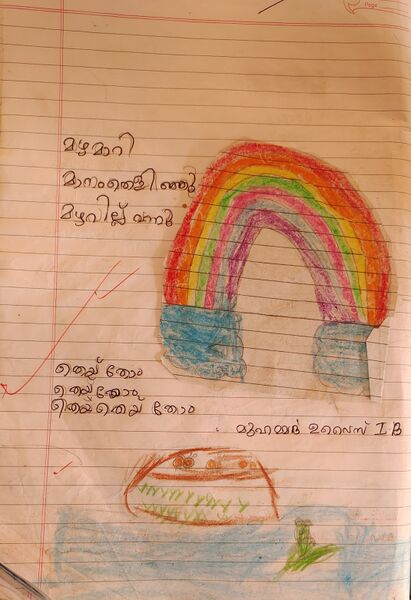 Page
മഴമാറി
മാനംതെളിഞ്ഞു
മഴവില്ല് വന്നു
തെയ്തോം
തെയ്തോം
തെയ്തെയ് തോം
മുഹമ്മദ് ഉവൈസ് I B